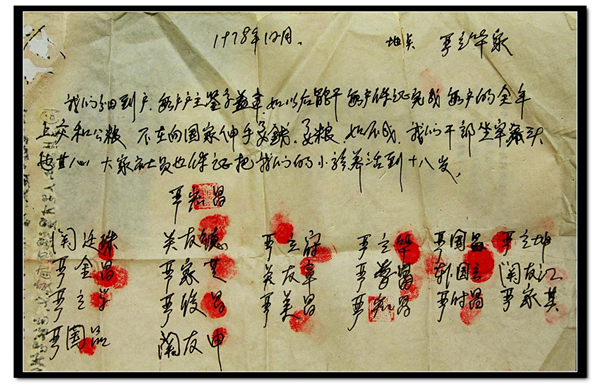 1978年12月. 地点 严立华家
我们分田到户 每户户主签字盖章 如以后能干 每户保证完成每户的全年
上交和公粮 不在向国家伸手要钱要粮。如不成，我们干部坐牢杀头
也甘心 大家社员也保证把我们的小孩养活到十八岁。
严宏昌
关廷珠 关友德 严立符 严立华 严国昌 严立坤
严金昌 严家芝 关友章 严学昌 韩国云 关友江
严立学 严俊昌 严美昌 严宏昌 严付昌 严家其
严国品 关友申